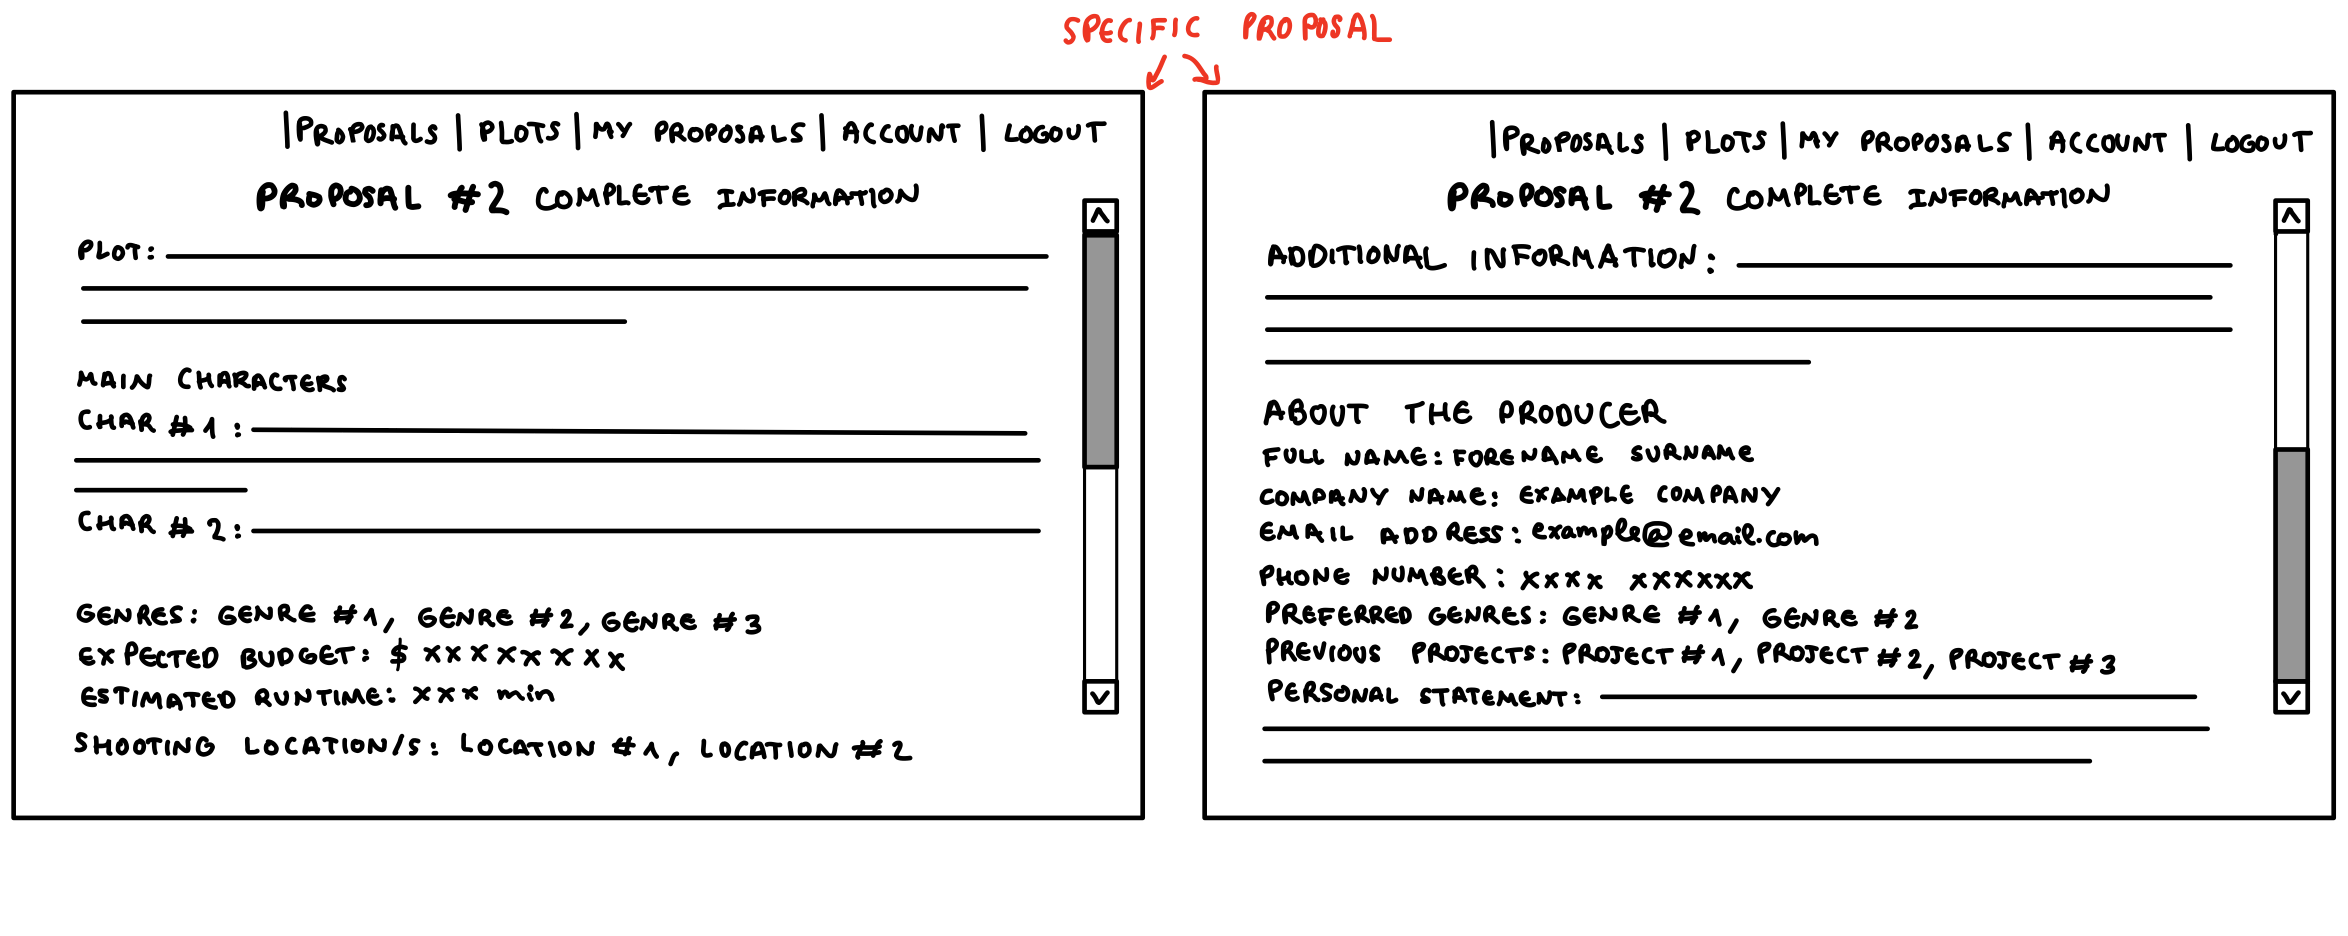 SPECIFIC PROPOSAL
|PROPOSALS | PLOTS | MY PROPOSALS | ACCOUNT | LOGOUT
PROPOSAL #2 COMPLETE INFORMATION
PLOT:
MAIN CHARACTERS
CHAR #1:
CHAR #2:
GENRES: GENRE #1, GENRE #2, GENRE #3
EXPECTED BUDGET: $ XXXXXXXX
ESTIMATED RUNTIME: XXX min
SHOOTING LOCATION/S: LOCATION #1, LOCATION #2
|PROPOSALS | PLOTS | MY PROPOSALS | ACCOUNT | LOGOUT
PROPOSAL #2 COMPLETE INFORMATION
ADDITIONAL INFORMATION:
ABOUT THE PRODUCER
FULL NAME: FORENAME SURNAME
COMPANY NAME: EXAMPLE COMPANY
EMAIL ADDRESS: example@email.com
PHONE NUMBER: XXXX XXXXXX
PREFERRED GENRES: GENRE #1, GENRE #2
PREVIOUS PROJECTS: PROJECT #1, PROJECT #2, PROJECT #3
PERSONAL STATEMENT: